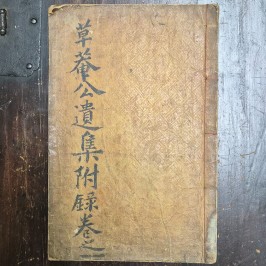 草菴公遺集附録卷之二